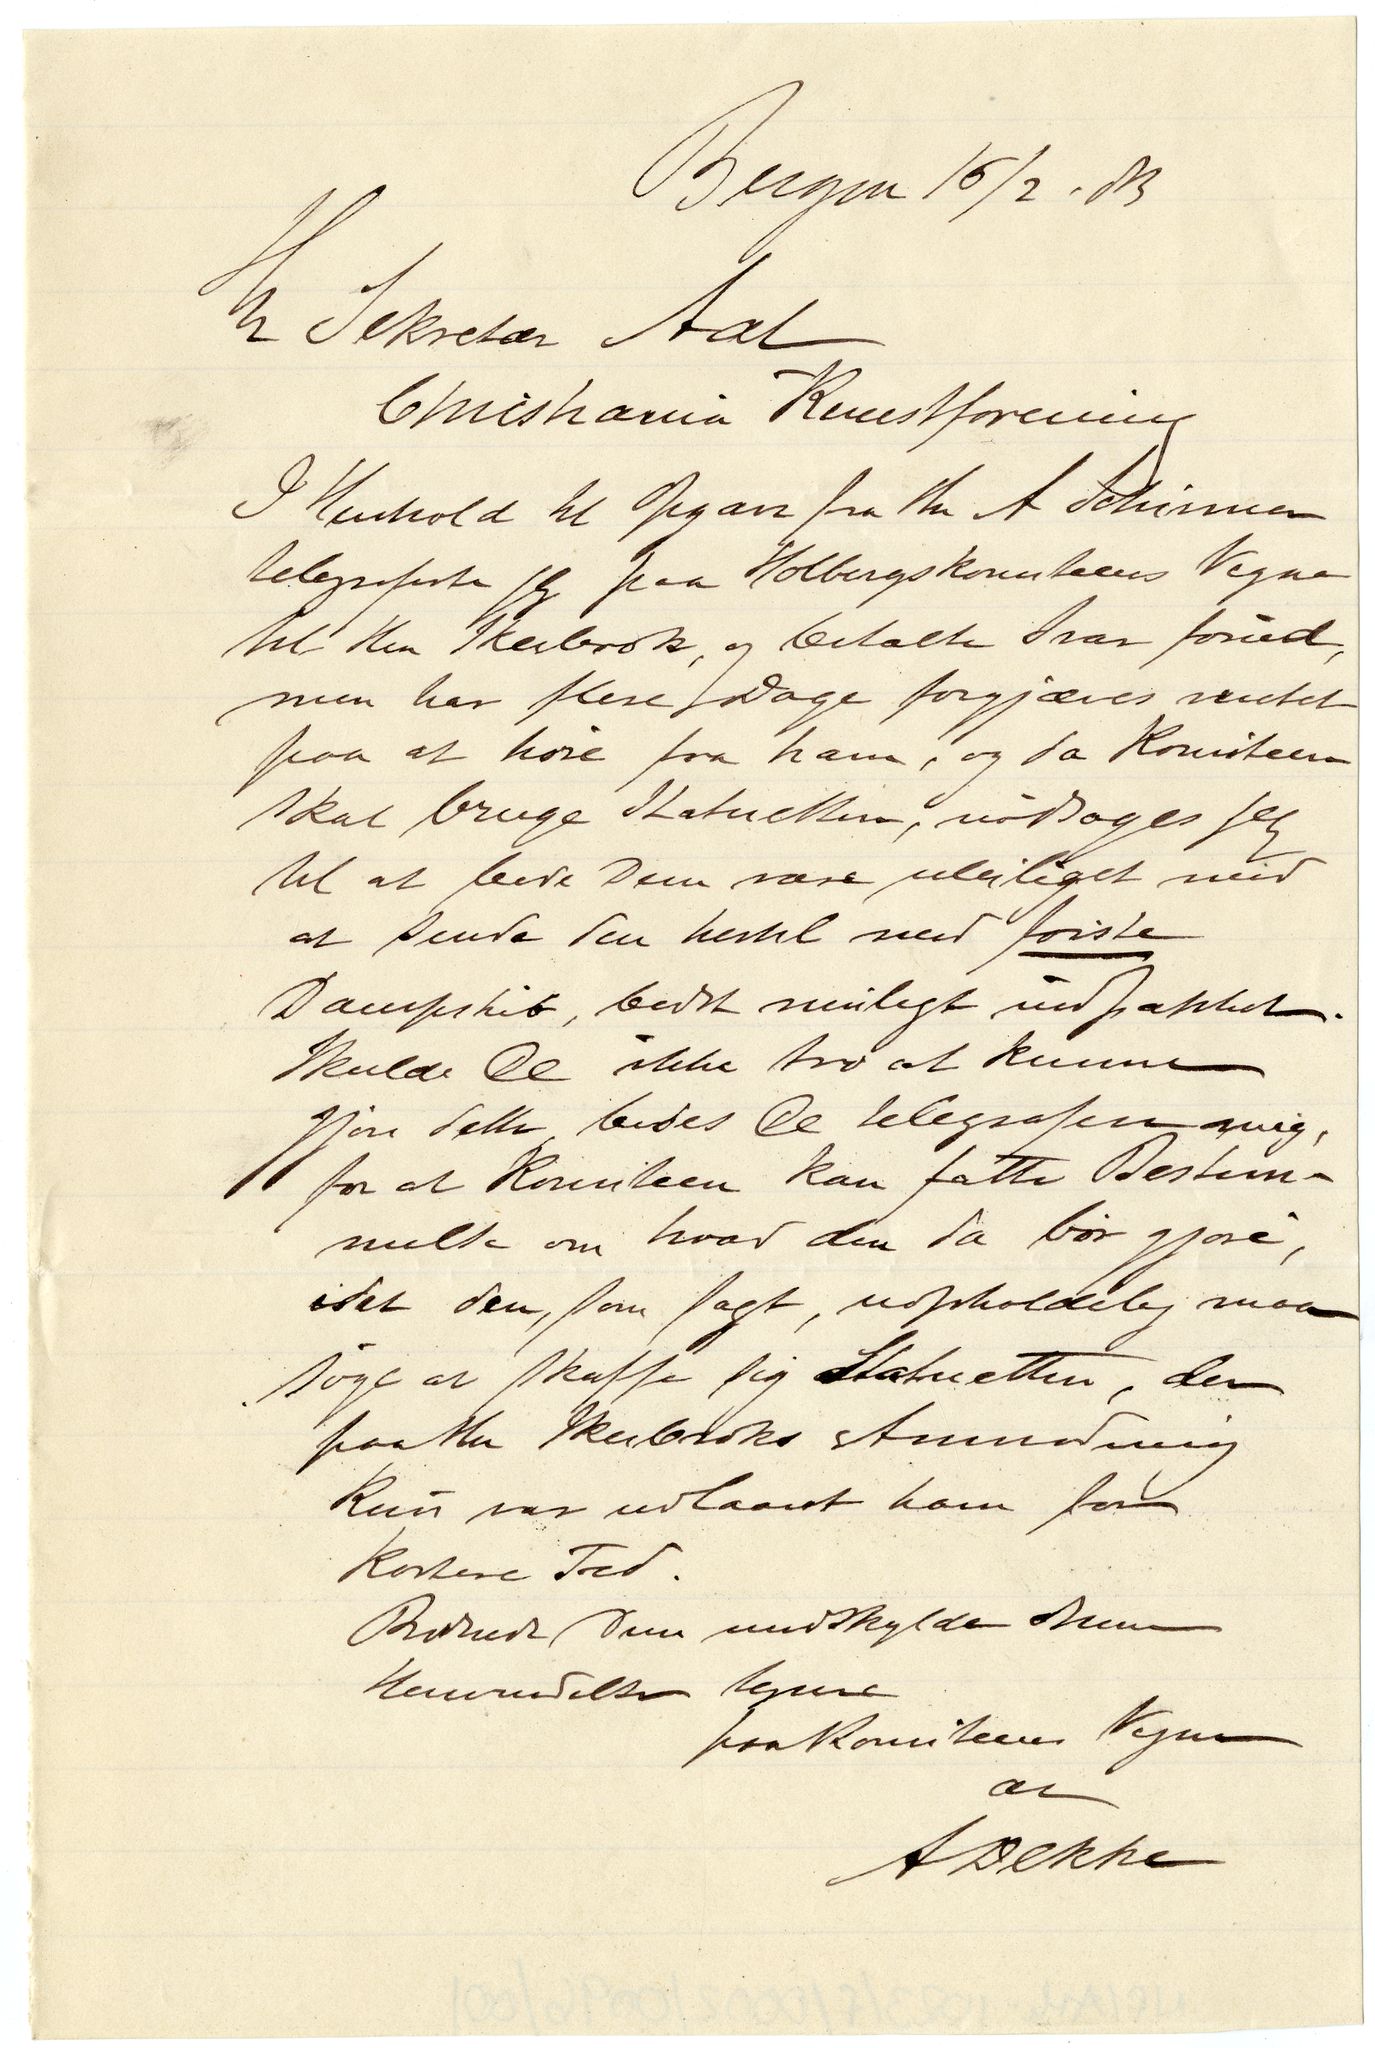 Bergen 16/2. 83
Hr Sekretær Aal
Christiania Kunstforening
I Henhold til Opgave fra Hr A Schirmer
telegraferte jeg paa Holbergskomiteens Vegne
til Hr Skeibrok, og betalte Svar forud,
men har flere Dage forgjæves ventet
paa at höre fra ham, og da Komiteen
skal bruge Statuetten, nödsages jeg
til at bede Dem være uleiliget med
at sende den hertil med förste
Dampskib, bedst muligt indpakket.
Skulde De ikke tro at kunne
gjöre dette, bedes De telegrafere mig,
for at Komiteen kan fatte Bestem-
melse om hvad den da bör gjöre,
idet den, som sagt, uopholdelig maa
söge at skaffe sig Statuetten, der
paa Hr Skeibroks Anmodning
kun var udlaant ham for
kortere Tid.
Bedende Dem undskylde denne
Henvendelse tegner
paa Komiteens Vegne
ær
A Dekke